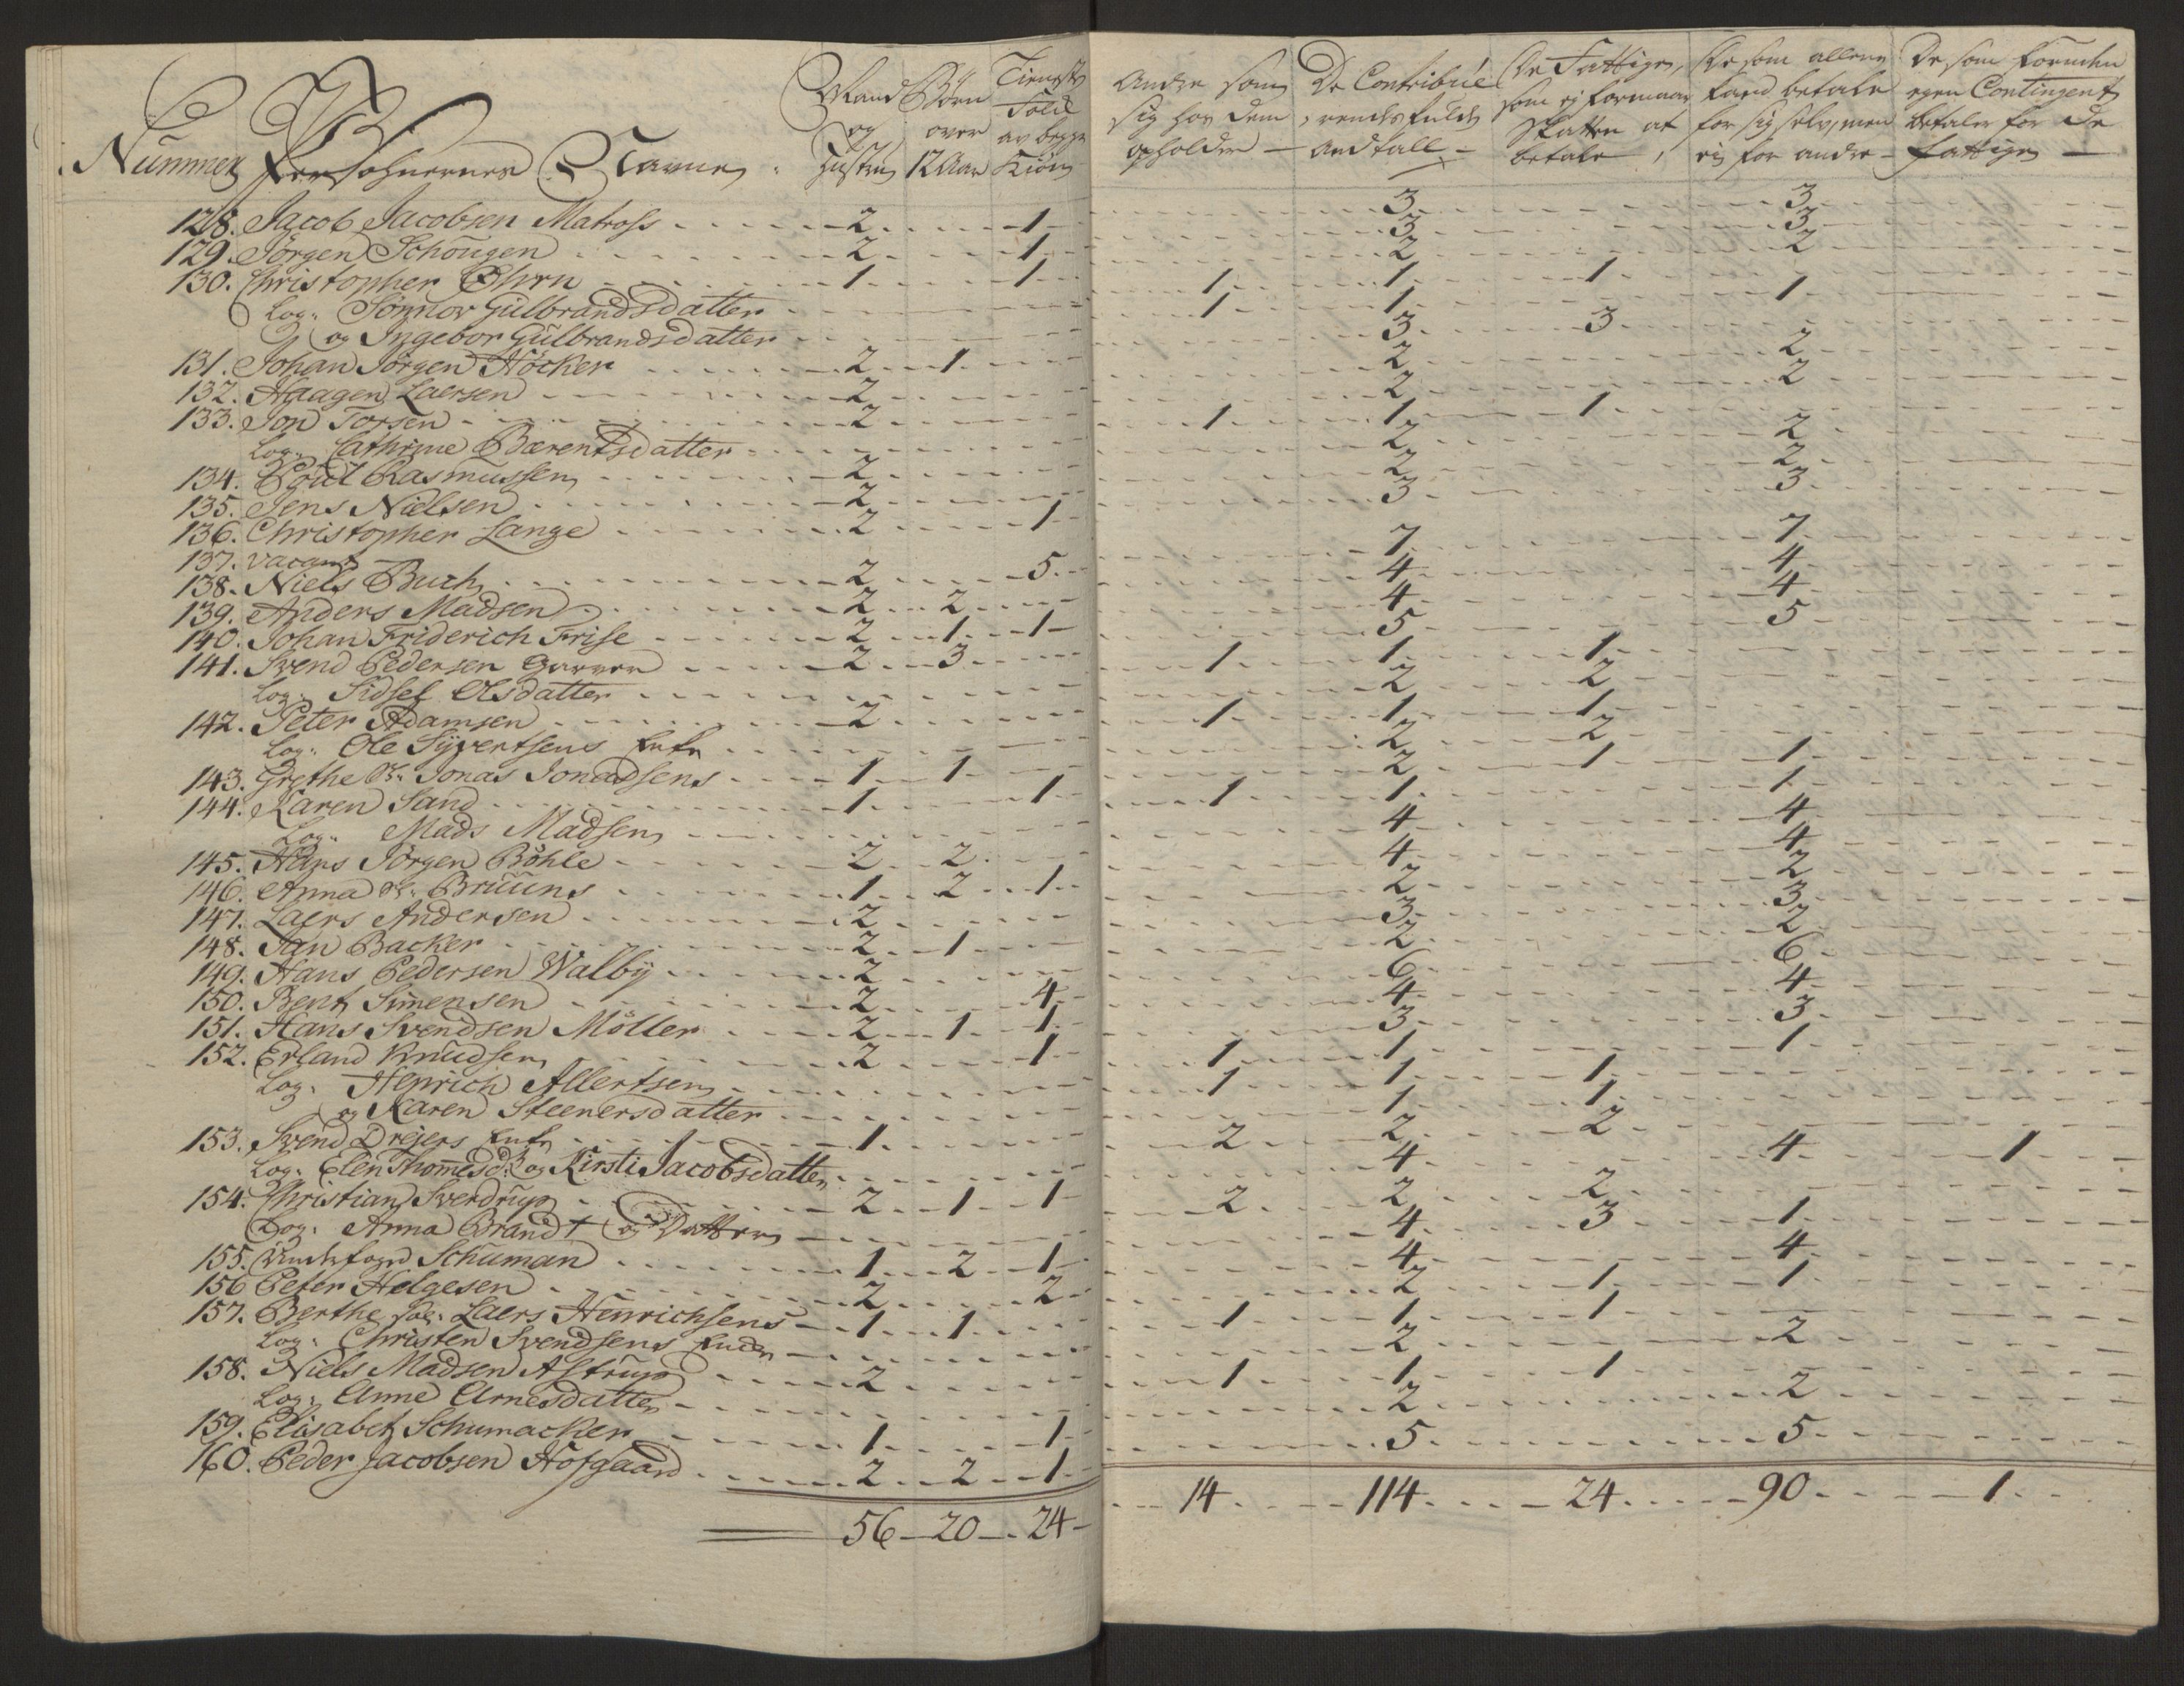 Nummer Persohnernes Navne Mand og Hustru Børn over 12 Aar Tieneste Folk av begge Kiøn Andre som sig hos dem opholder De Contribuerendes fulde Andtall De Fattige, som ej formaar Skatten at betale De som allene kand betale for sig selv, men ej for andre De som foruden egen Contingent betaler for de fattige
128. Jacob Jacobsen Matross 2 1 3 3
129. Jörgen Schougen 2 1 3 3
130. Christopher Ohrn 1 1 2 2
Log: Sönnov Gulbrandsdatter 1 1 1
og Ingebor Gulbrandsdatter 1 1 1
131. Johan Jörgen Höcker 2 1 3 3
132. Haagen Laersen 2 2 2
133. Jon Torsen 2 2 2
Log: Cathrine Bærentsdatter 1 1 1
134. Poul Rasmussen 2 2 2
135. Jens Nielsen 2 2 2
136. Christopher Lange 2 1 3 3
137. vacant
138. Niels Buch 2 5 7 7
139. Anders Madsen 2 2 4 4
140. Johan Friderich Frise 2 1 1 4 4
141. Svend Pedersen Garver 2 3 5 5
Log: Sidsel Olsdatter 1 1 1
142. Peter Adamsen 2 2 2
Log: Ole Syvertsens Enke 1 1 1
143. Grethe Sl: Jonas Jonassens 1 1 2 2
144. Karen Sand 1 1 2 1 1
Log: Mads Madsen 1 1 1
145. Hans Jörgen Böhle 2 2 4 4
146. Anna Sl: Bruuns 1 2 1 4 4
147. Laers Andersen 2 2 2
148. Jan Backer 2 1 3 3
149. Hans Pedersen Walby 2 2 2
150. Bent Simensen 2 4 6 6
151. Hans Svendsen Möller 2 1 1 4 4
152. Erland Knudsen 2 1 3 3
Log: Henrich Allertsen 1 1 1
og Karen Steenersdatter 1 1 1
153. Svend Drejers Enke 1 1 1
Log: Elen Thomesd: og Kirsti Jacobsdatter 2 2 2
154. Christian Sverdrup 2 1 1 4 4 1
Log: Anna Brandt og Datter 2 2 2
155. Schuman 1 2 1 4 3 1
156 Peter Helgesen 2 2 4 4
157. Berthe sal: Laers Henrichsens 1 1 2 1 1
Log: Christen Svendsens Enke 1 1 1
158. Niels Madsen Astrup 2 2 2
Log: Anne Arnesdatter 1 1 1
159. Elisabet Schumacker 1 1 2 2
160. Peder Jacobsen Hofgaard 2 2 1 5 5
56 20 24 14 114 24 90 1